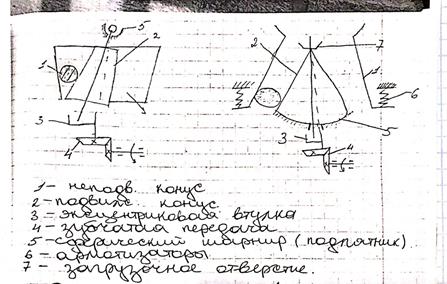 5
1
2
3
4
2
7
1
6
5
3
4
1 - неподв. конус
2 - подвиж конус
3 - эксцентриковая втулка
4 - зубчатая передача
5 - сферический шарнир (подпятник)
6 - армотизаторы
7 - загрузочное отверстие.